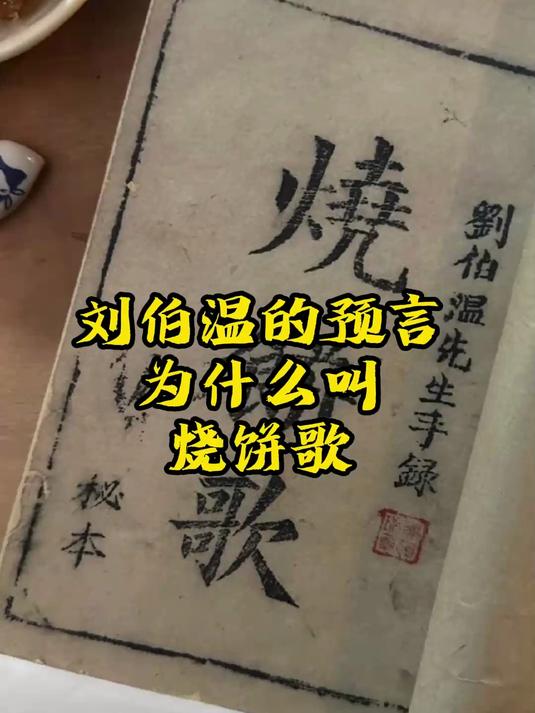 刘伯温的预言
为什么叫
烧饼歌
劉伯温先生手録
燒
歌
秘本